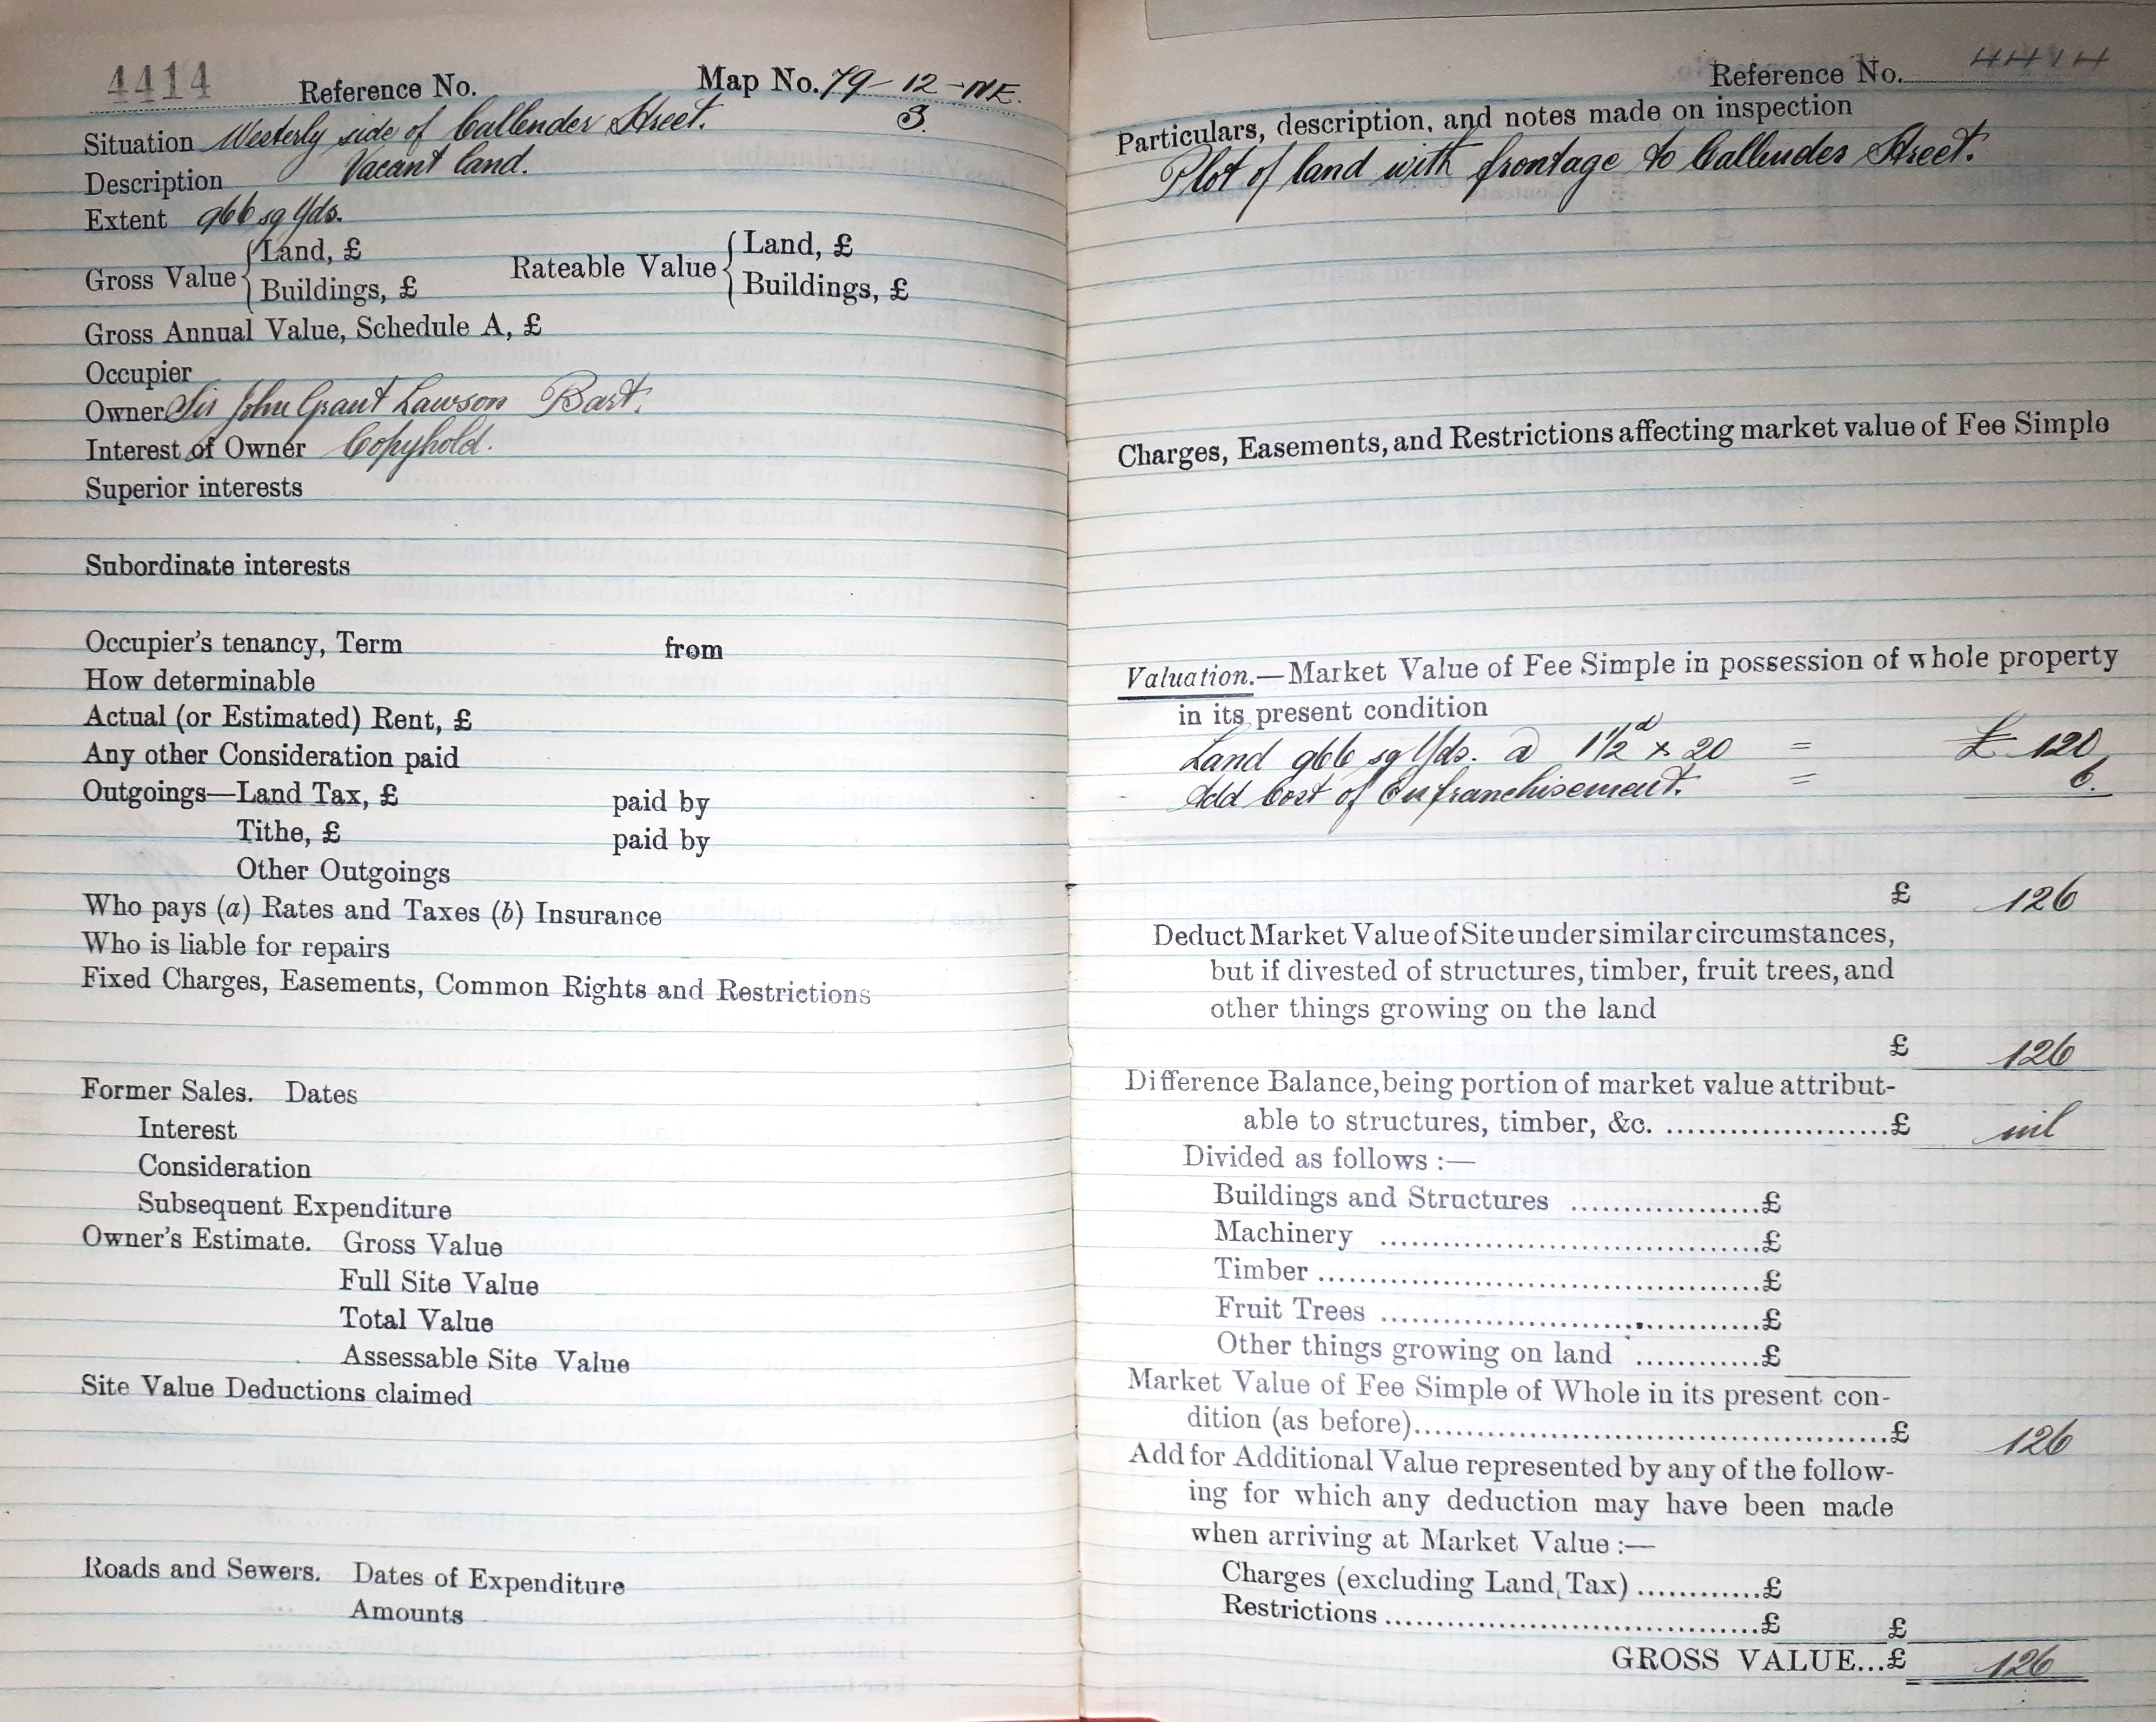 4414 Reference No. Map No. 79-12-NE.
3.
Situation Westerly side of Callender Street.
Description Vacant land.
Extent 966 sq yds.
Gross Value { Land, £ Rateable Value { Land, £
Buildings, £ Buildings, £
Gross Annual Value, Schedule A, £
Occupier
Owner Sir John Grant Lawson Bart.
Interest of Owner Copyhold.
Superior interests
Subordinate interests
Occupier's tenancy, Term from
How determinable
Actual (or Estimated) Rent, £
Any other Consideration paid
Outgoings—Land Tax, £ paid by
Tithe, £ paid by
Other Outgoings
Who pays (a) Rates and Taxes (b) Insurance
Who is liable for repairs
Fixed Charges, Easements, Common Rights and Restrictions
Former Sales. Dates
Interest
Consideration
Subsequent Expenditure
Owner's Estimate. Gross Value
Full Site Value
Total Value
Assessable Site Value
Site Value Deductions claimed
Roads and Sewers. Dates of Expenditure
Amounts
Reference No. 4414
Particulars, description, and notes made on inspection
Plot of land with frontage to Callender Street.
Charges, Easements, and Restrictions affecting market value of Fee Simple
Valuation.—Market Value of Fee Simple in possession of whole property
in its present condition
Land 966 sq yds. @ 1½d x 20 = £ 120
Add Cost of Enfranchisement. = 6.
£ 126
Deduct Market Value of Site under similar circumstances,
but if divested of structures, timber, fruit trees, and
other things growing on the land
£ 126
Difference Balance, being portion of market value attribut-
able to structures, timber, &c. ....................£ nil
Divided as follows :—
Buildings and Structures ..................£
Machinery ....................................£
Timber .........................................£
Fruit Trees ....................................£
Other things growing on land ............£
Market Value of Fee Simple of Whole in its present con-
dition (as before)..............................................£ 126
Add for Additional Value represented by any of the follow-
ing for which any deduction may have been made
when arriving at Market Value :—
Charges (excluding Land Tax) ............£
Restrictions ....................................£ £
GROSS VALUE...£ 126